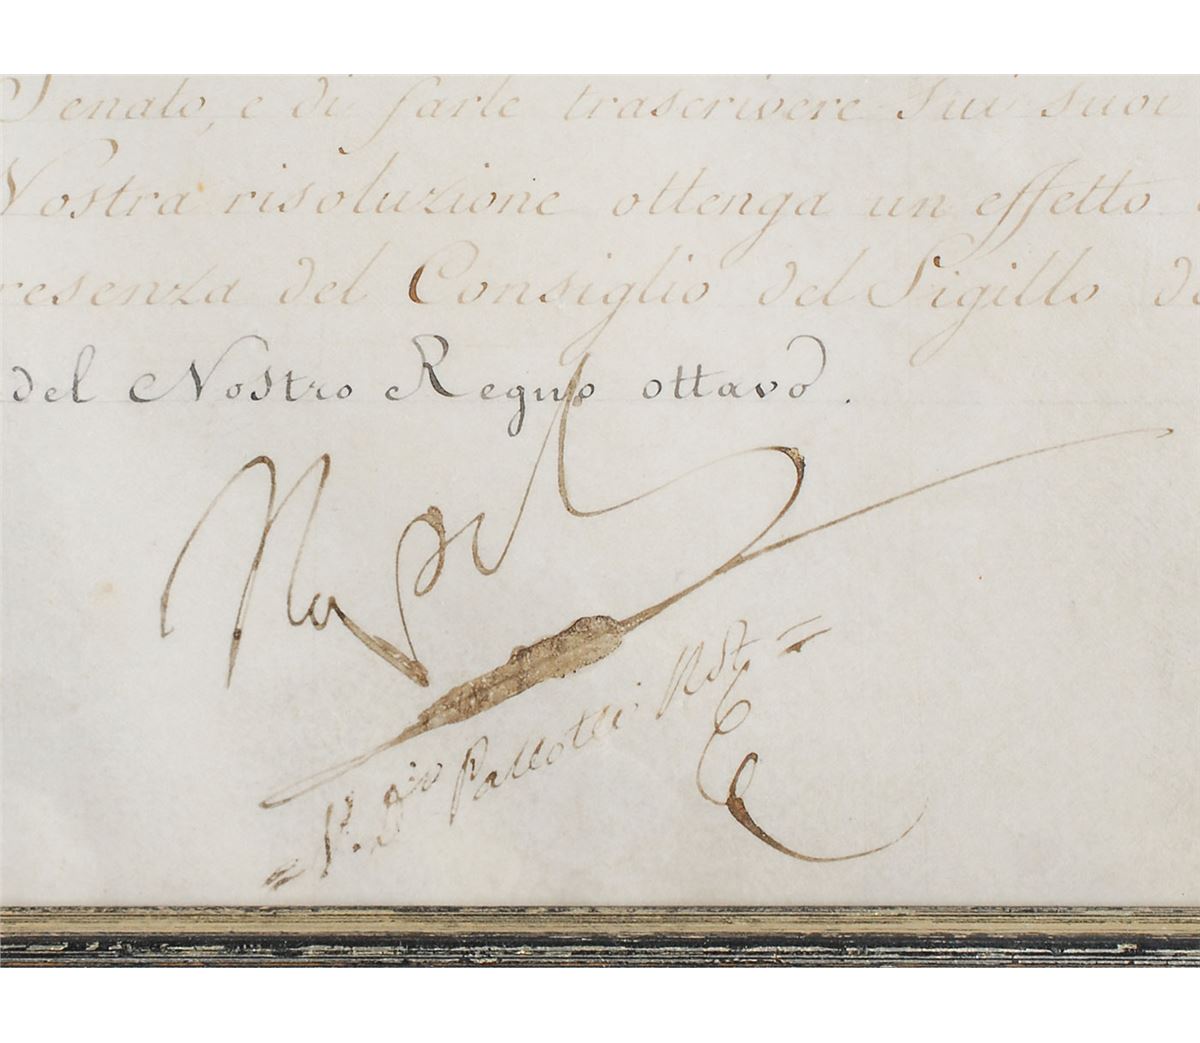 Senato, e di farle trascrivere sui suoi
Nostra risoluzione ottenga un effetto
resenza del Consiglio del Sigillo de
del Nostro Regno ottavo.
Napol